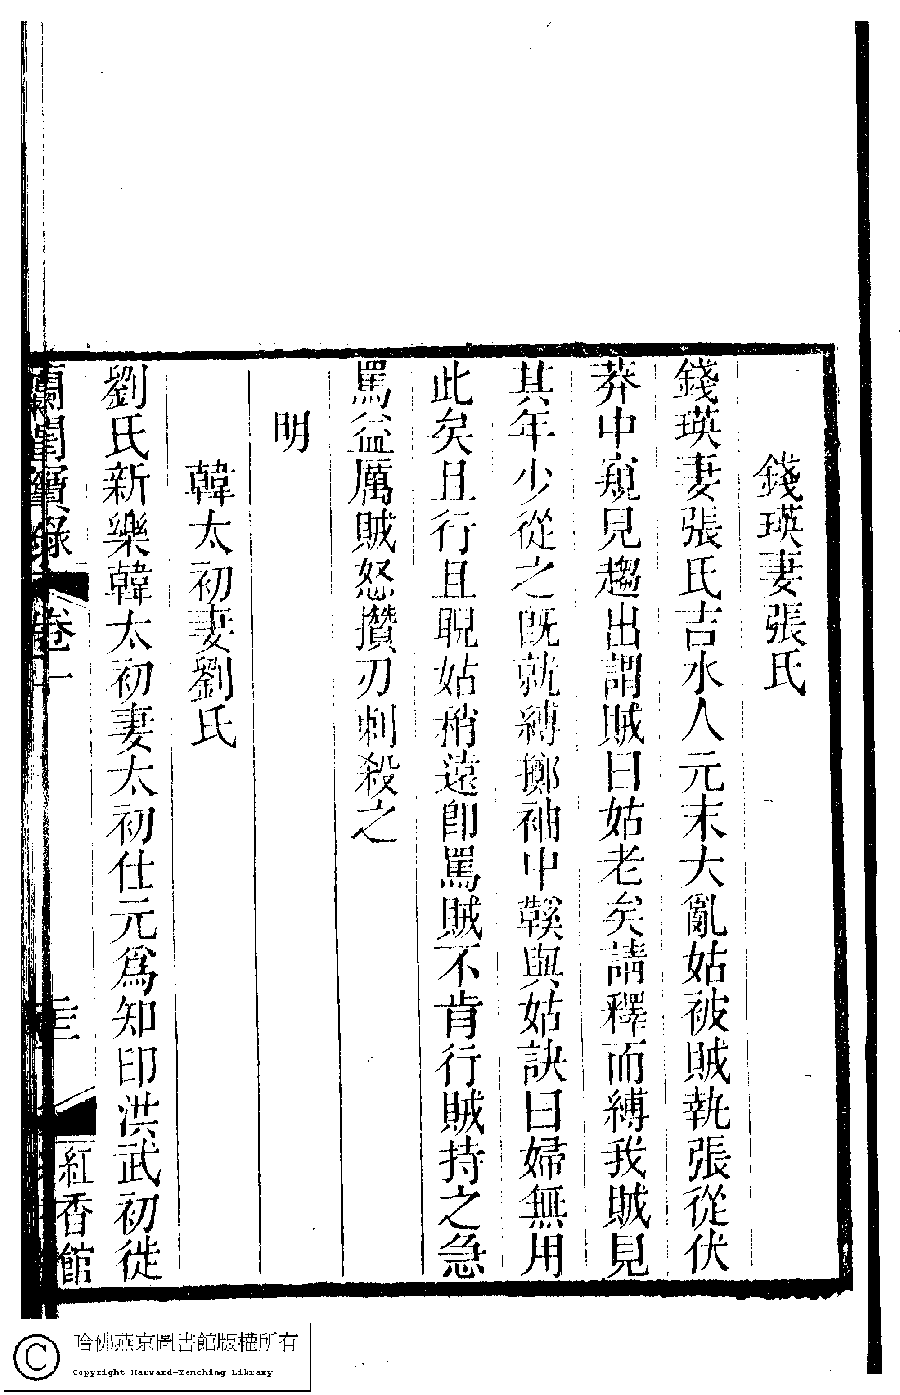 錢瑛妻張氏
錢瑛妻張氏吉水人元末大亂姑被賊執張從伏
莽中窺見趨出謂賊曰姑老矣請釋而縛我賊見
其年少從之既就縛擲袖中鞵與姑訣曰婦無用
此矣且行且睨姑稍遠卽罵賊不肯行賊持之急
罵益厲賊怒攢刃刺殺之
明
韓太初妻劉氏
劉氏新樂韓太初妻太初仕元爲知印洪武初徙
蘭閨寶錄 卷十
紅香館
哈佛燕京圖書館版權所有
Copyright Harvard-Yenching Library